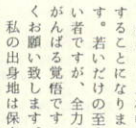 することになりま
す。若いだけの至
い者ですが、全力
がんばる覚悟です
くお願い致します
私の出身地は保